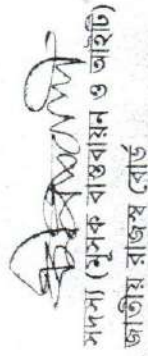 সদস্য (মূসক বাস্তবায়ন ও আইটি)
জাতীয় রাজস্ব বোর্ড